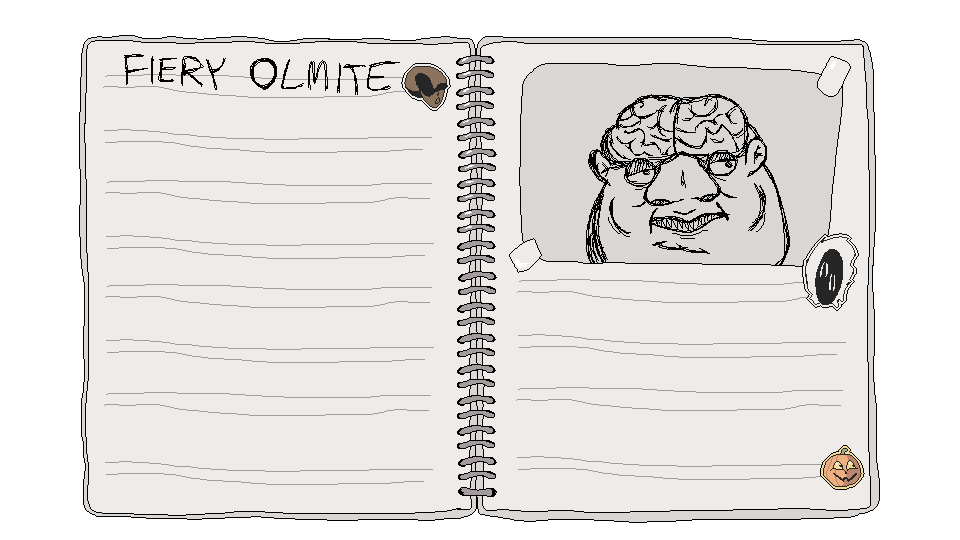 FIERY OLMITE